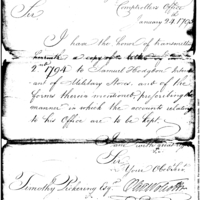 Comptrollers Office
Sir
January 24. 1795
I have the honor of transmitting
a copy of a letter of
2nd 1794 to Samuel Hodgdon
of Military Stores, and of the
forms therein mentioned, prescribing the
manner in which the accounts relating
to his Office are to be kept.
I am with great
Sir
Your Obedient
Timothy Pickering Esq